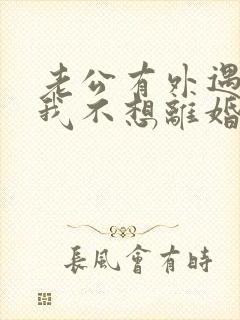 老公有外遇
我不想離婚
長風會有時